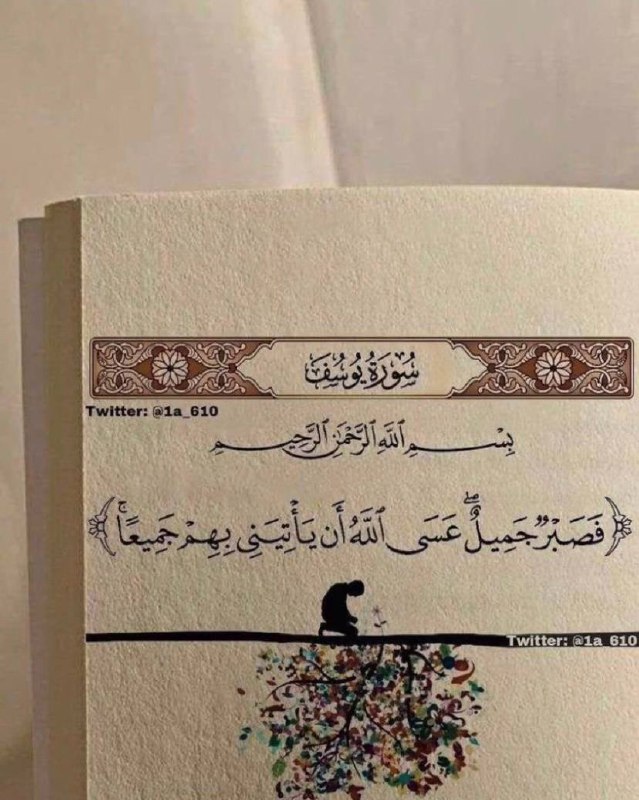 سُورَةُ يُوسُفَ
Twitter: @1a_610
بِسْمِ ٱللَّهِ ٱلرَّحْمَٰنِ ٱلرَّحِيمِ
﴿فَصَبْرٌ جَمِيلٌۖ عَسَى ٱللَّهُ أَن يَأْتِيَنِي بِهِمْ جَمِيعًاۚ﴾
Twitter: @1a_610